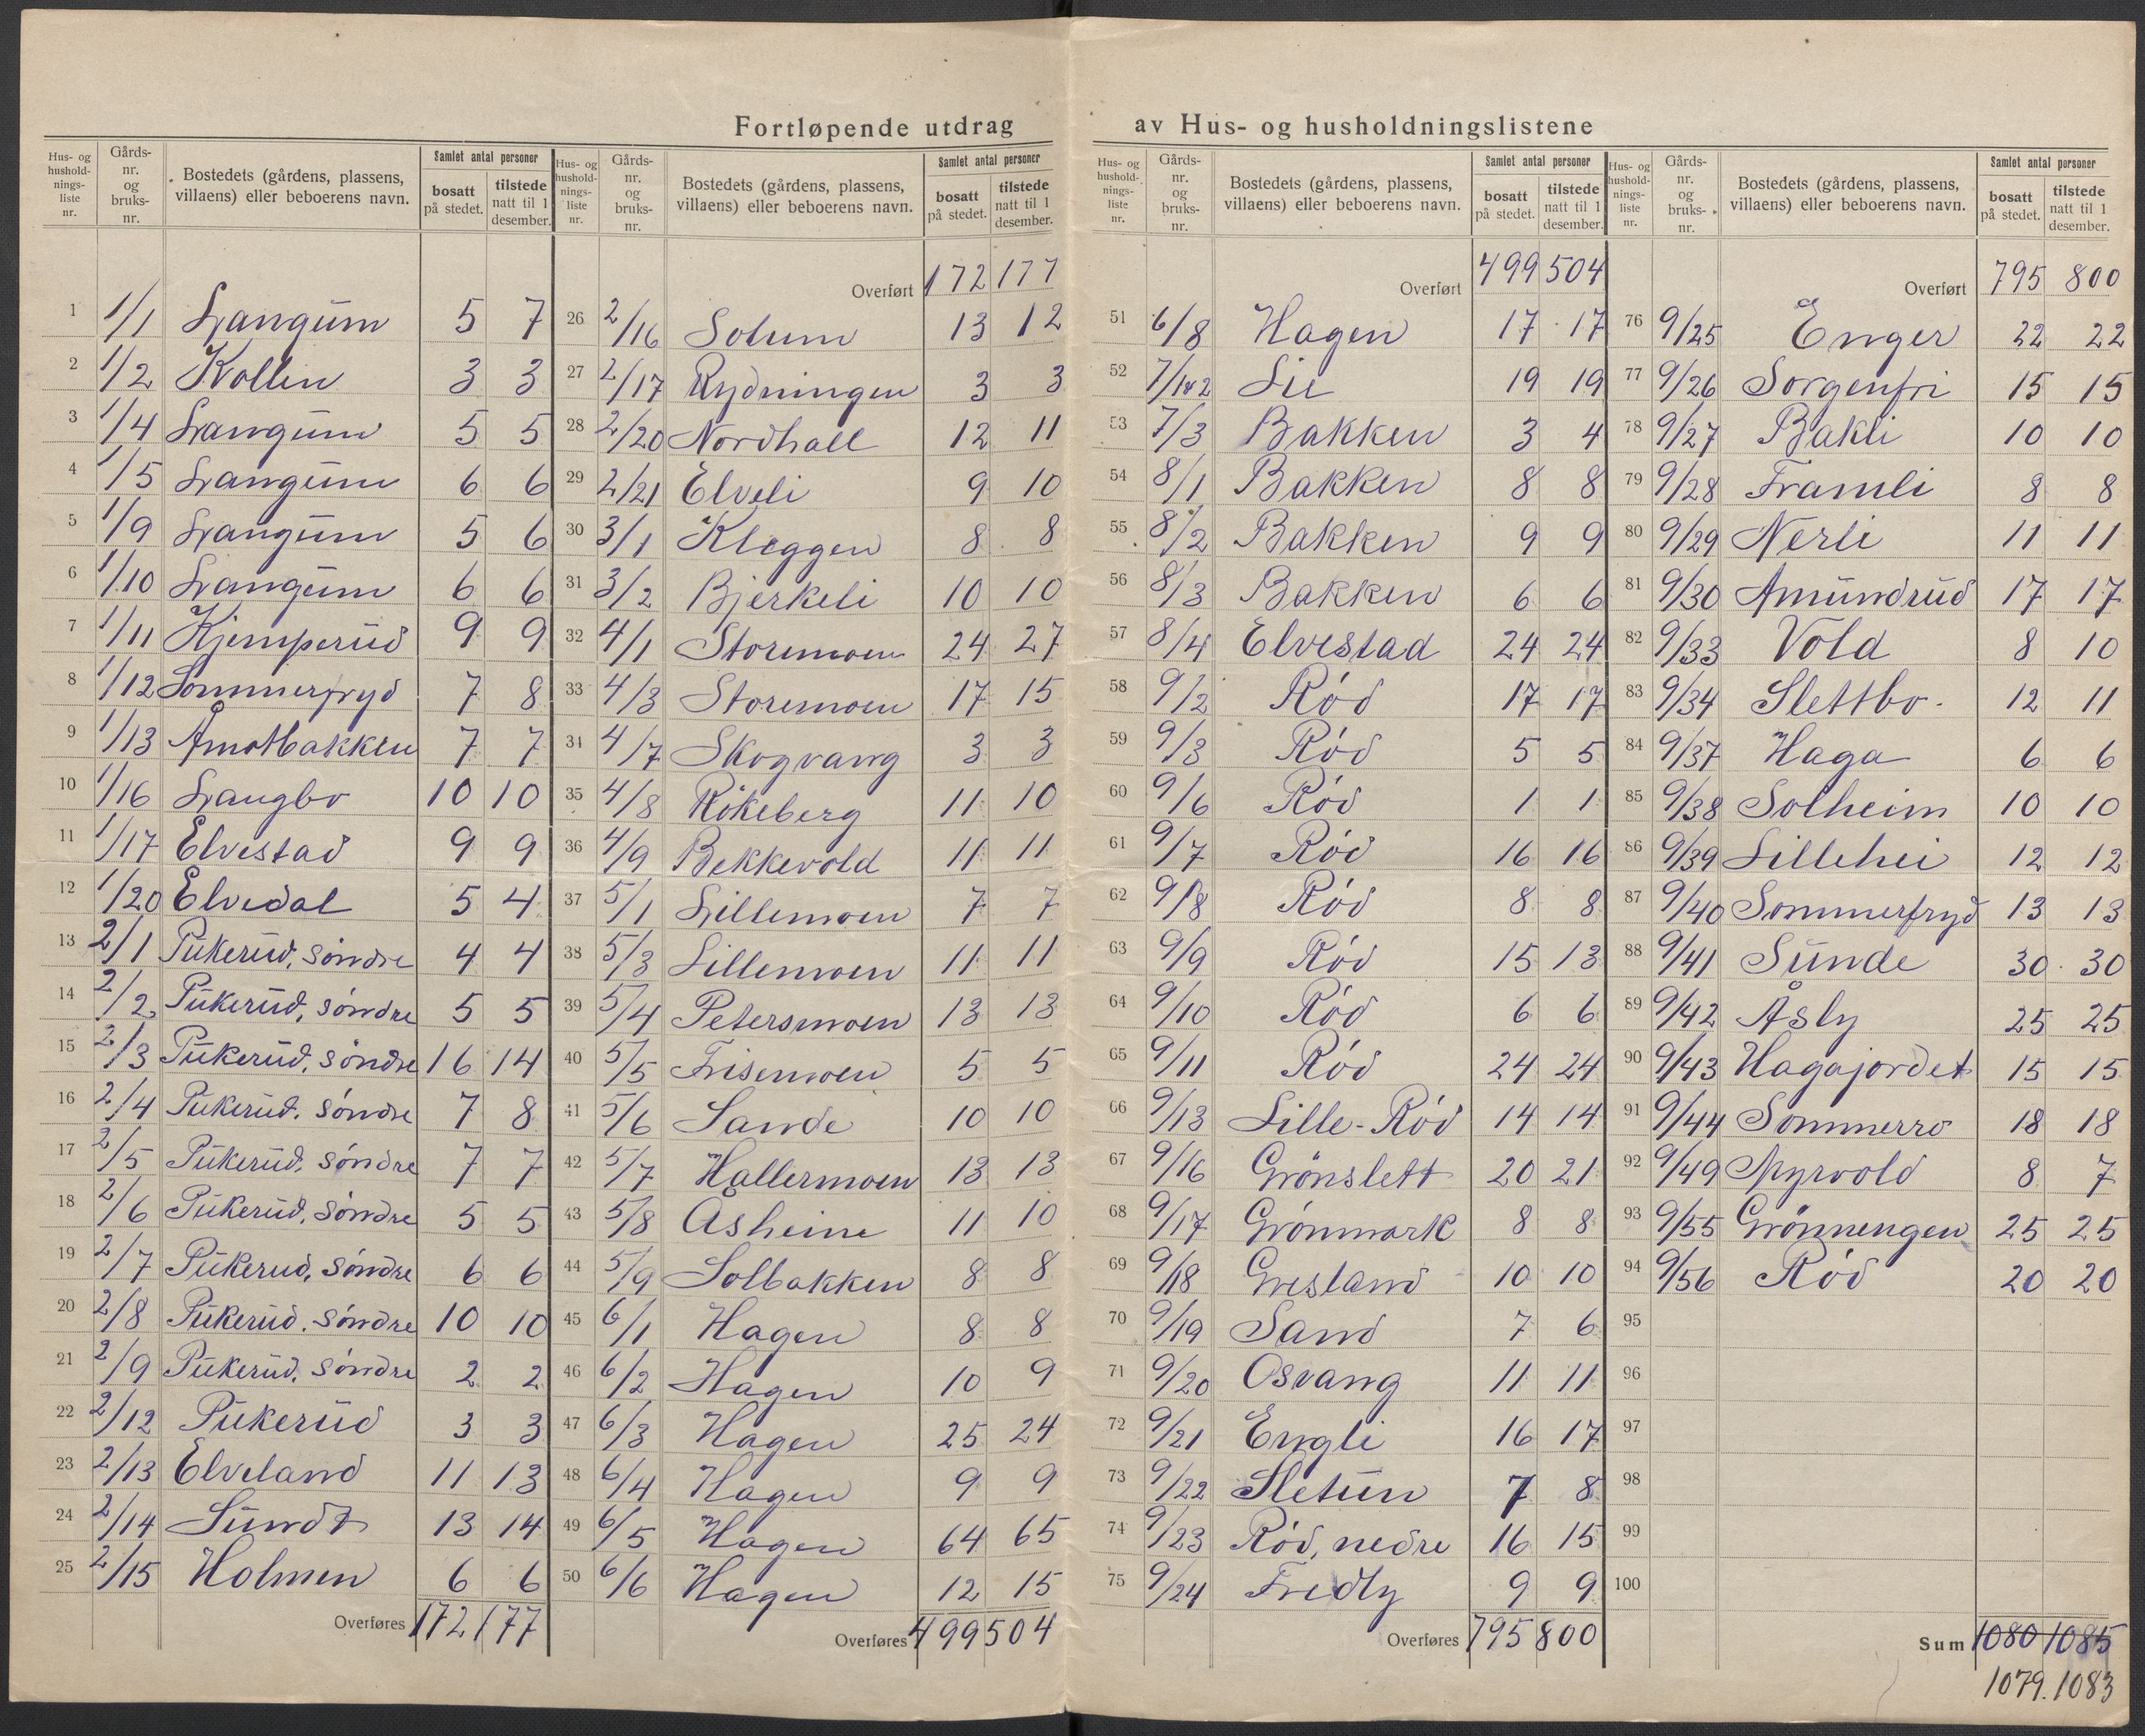 Fortløpende utdrag av Hus- og husholdningslistene
Hus- og hushold-nings-liste nr. | Gårds-nr. og bruks-nr. | Bostedets (gårdens, plassens, villaens) eller beboerens navn. | Samlet antal personer | bosatt på stedet. | tilstede natt til 1 desember.
1 1/1 Langum 5 7
2 1/2 Kollen 3 3
3 1/4 Langum 5 5
4 1/5 Langum 6 6
5 1/9 Langum 5 6
6 1/10 Langum 6 6
7 1/11 Kjemperud 9 9
8 1/12 Sommerfryd 7 8
9 1/13 Åmotbakken 7 7
10 1/16 Langbo 10 10
11 1/17 Elvestad 9 9
12 1/20 Elvedal 5 4
13 2/1 Pukerud, søndre 4 4
14 2/2 Pukerud, søndre 5 5
15 2/3 Pukerud, søndre 16 14
16 2/4 Pukerud, søndre 7 8
17 2/5 Pukerud, søndre 7 7
18 2/6 Pukerud, søndre 5 5
19 2/7 Pukerud, søndre 6 6
20 2/8 Pukerud, søndre 10 10
21 2/9 Pukerud, søndre 2 2
22 2/12 Pukerud 3 3
23 2/13 Elveland 11 13
24 2/14 Sundt 13 14
25 2/15 Holmen 6 6
Overføres 172 177
Hus- og hushold-nings-liste nr. | Gårds-nr. og bruks-nr. | Bostedets (gårdens, plassens, villaens) eller beboerens navn. | Samlet antal personer | bosatt på stedet. | tilstede natt til 1 desember.
Overført 172 177
26 2/16 Solum 13 12
27 2/17 Rydningen 3 3
28 2/20 Nordhall 12 11
29 2/21 Elveli 9 10
30 3/1 Kleggen 8 8
31 3/2 Bjerkeli 10 10
32 4/1 Storemoen 24 27
33 4/3 Storemoen 17 15
34 4/7 Skogvang 3 3
35 4/8 Rökeberg 11 10
36 4/9 Bekkevold 11 11
37 5/1 Lillemoen 7 7
38 5/3 Lillemoen 11 11
39 5/4 Petersmoen 13 13
40 5/5 Frisemoen 5 5
41 5/6 Sande 10 10
42 5/7 Hallermoen 13 13
43 5/8 Åsheim 11 10
44 5/9 Solbakken 8 8
45 6/1 Hagen 8 8
46 6/2 Hagen 10 9
47 6/3 Hagen 25 24
48 6/4 Hagen 9 9
49 6/5 Hagen 64 65
50 6/6 Hagen 12 15
Overføres 499 504
Hus- og hushold-nings-liste nr. | Gårds-nr. og bruks-nr. | Bostedets (gårdens, plassens, villaens) eller beboerens navn. | Samlet antal personer | bosatt på stedet. | tilstede natt til 1 desember.
Overført 499 504
51 6/8 Hagen 17 17
52 7/1&2 Lie 19 19
53 7/3 Bakken 3 4
54 8/1 Bakken 8 8
55 8/2 Bakken 9 9
56 8/3 Bakken 6 6
57 8/4 Elvestad 24 24
58 9/2 Rød 17 17
59 9/3 Rød 5 5
60 9/6 Rød 1 1
61 9/7 Rød 16 16
62 9/8 Rød 8 8
63 9/9 Rød 15 13
64 9/10 Rød 6 6
65 9/11 Rød 24 24
66 9/13 Lille-Rød 14 14
67 9/16 Grönslett 20 21
68 9/17 Grönmark 8 8
69 9/18 Gresland 10 10
70 9/19 Sand 7 6
71 9/20 Osvang 11 11
72 9/21 Engli 16 17
73 9/22 Sletun 7 8
74 9/23 Rød, nedre 16 15
75 9/24 Fredly 9 9
Overføres 795 800
Hus- og hushold-nings-liste nr. | Gårds-nr. og bruks-nr. | Bostedets (gårdens, plassens, villaens) eller beboerens navn. | Samlet antal personer | bosatt på stedet. | tilstede natt til 1 desember.
Overført 795 800
76 9/25 Enger 22 22
77 9/26 Sorgenfri 15 15
78 9/27 Bakli 10 10
79 9/28 Framli 8 8
80 9/29 Nerli 11 11
81 9/30 Amundrud 17 17
82 9/33 Vold 8 10
83 9/34 Slettbo. 12 11
84 9/37 Haga 6 6
85 9/38 Solheim 10 10
86 9/39 Lillehei 12 12
87 9/40 Sommerfryd 13 13
88 9/41 Sunde 30 30
89 9/42 Åsly 25 25
90 9/43 Hagajordet 15 15
91 9/44 Sommerro 18 18
92 9/49 Myrvold 8 7
93 9/55 Grönnengen 25 25
94 9/56 Rød 20 20
95
96
97
98
99
100
Sum 1080 1085
1079. 1083